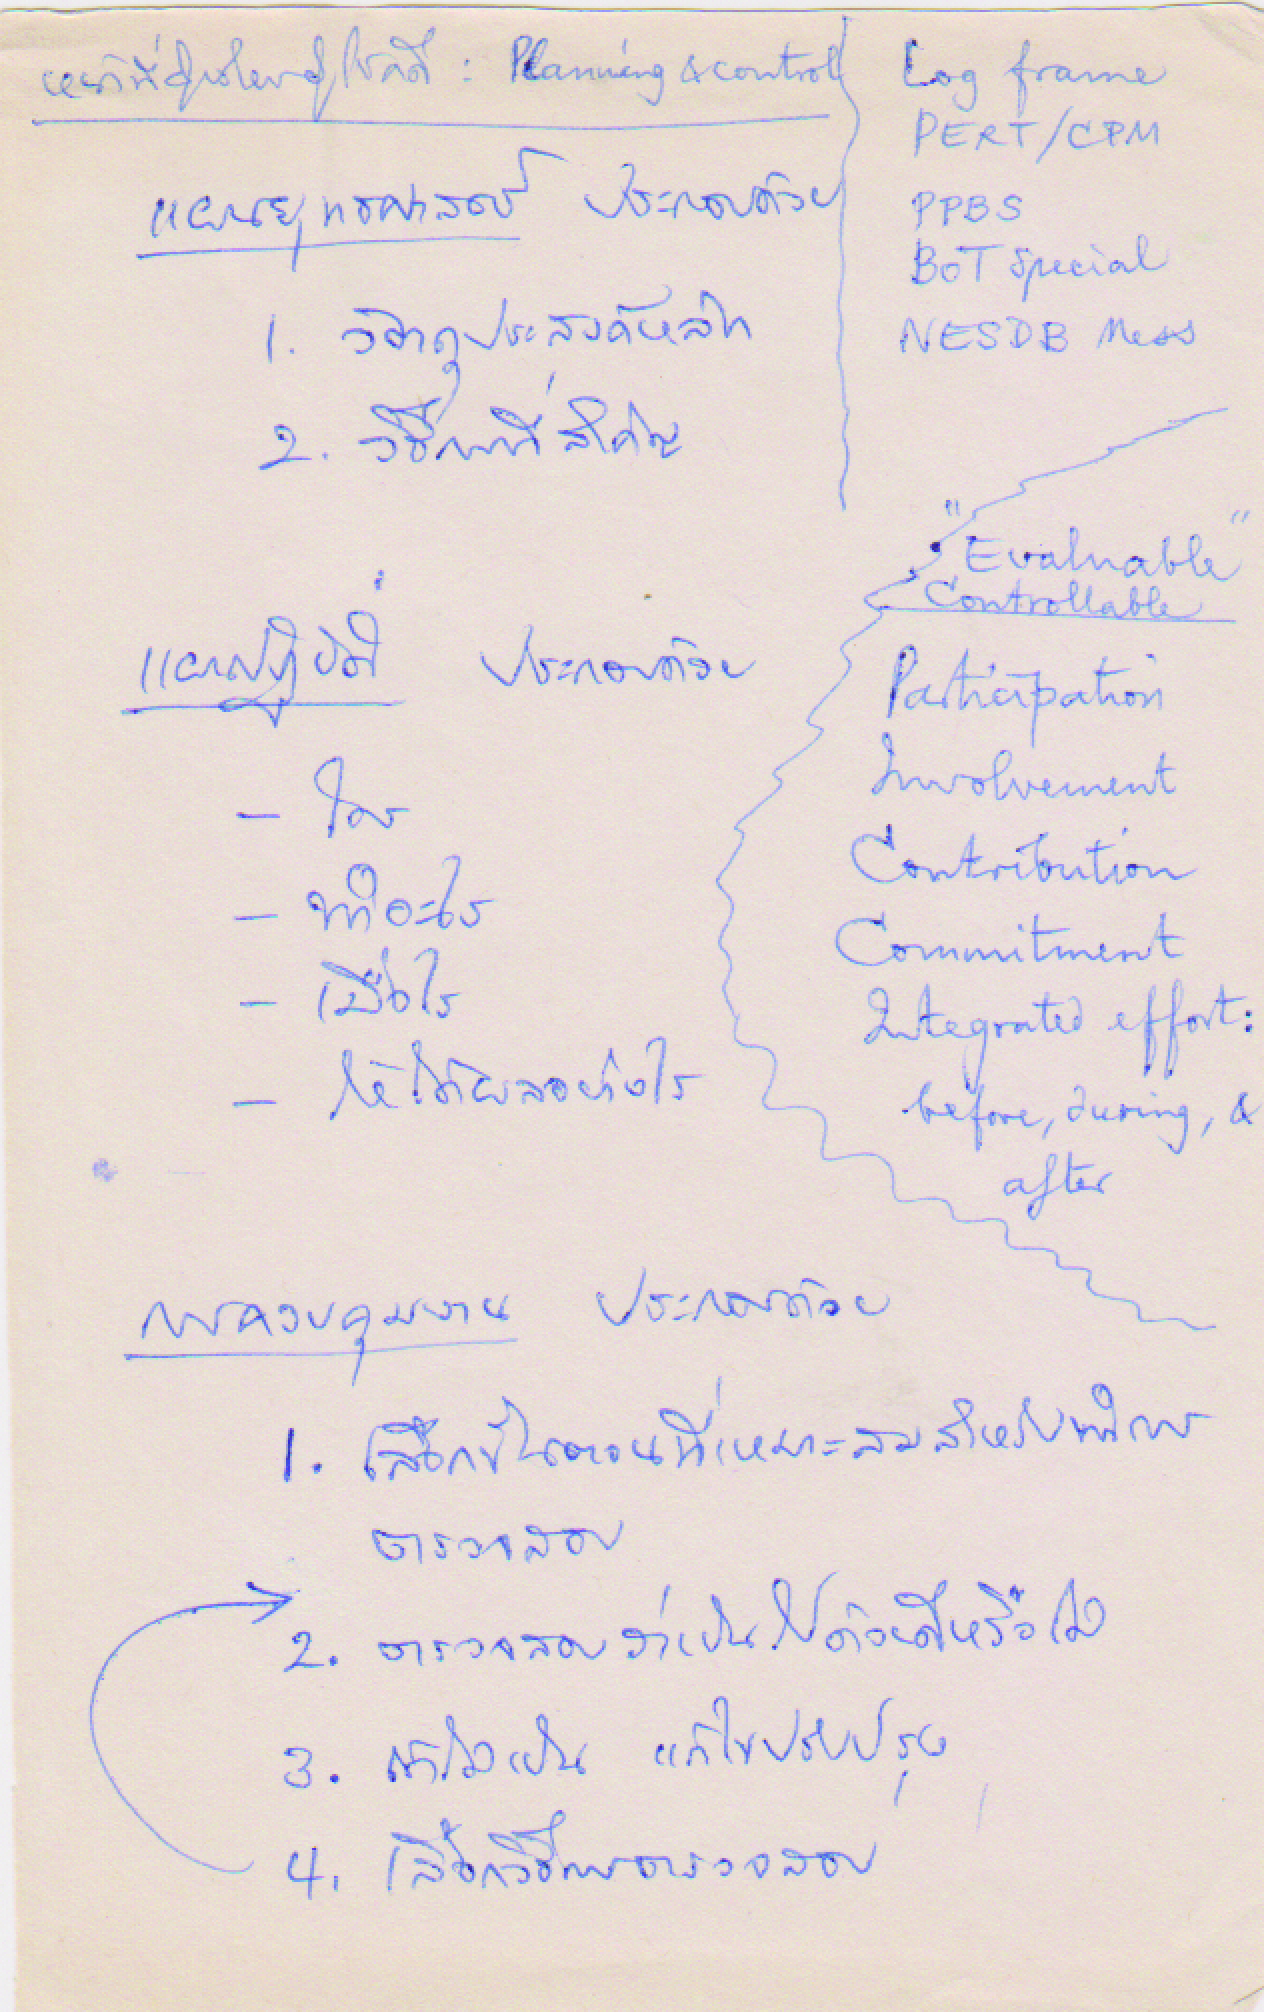 : Planning & control
แผนยุทธศาสตร์ ประกอบด้วย
1. วัตถุประสงค์หลัก
2. วิธีการที่สำคัญ
แผนปฏิบัติ ประกอบด้วย
- ใคร
- ทำอะไร
- เมื่อไร
- ให้ได้ผลอย่างไร
การควบคุมงาน ประกอบด้วย
1. เลือกขั้นตอนที่เหมาะสมสำหรับทำการ
ตรวจสอบ
2. ตรวจสอบว่าเป็นไปด้วยดีหรือไม่
3. ถ้าไม่เป็น แก้ไขปรับปรุง
4. เลือกวิธีการตรวจสอบ
Log frame
PERT/CPM
PPBS
BOT Special
NESDB Mess
"Evaluable"
Controllable
Participation
Involvement
Contribution
Commitment
Integrated effort:
before, during, &
after